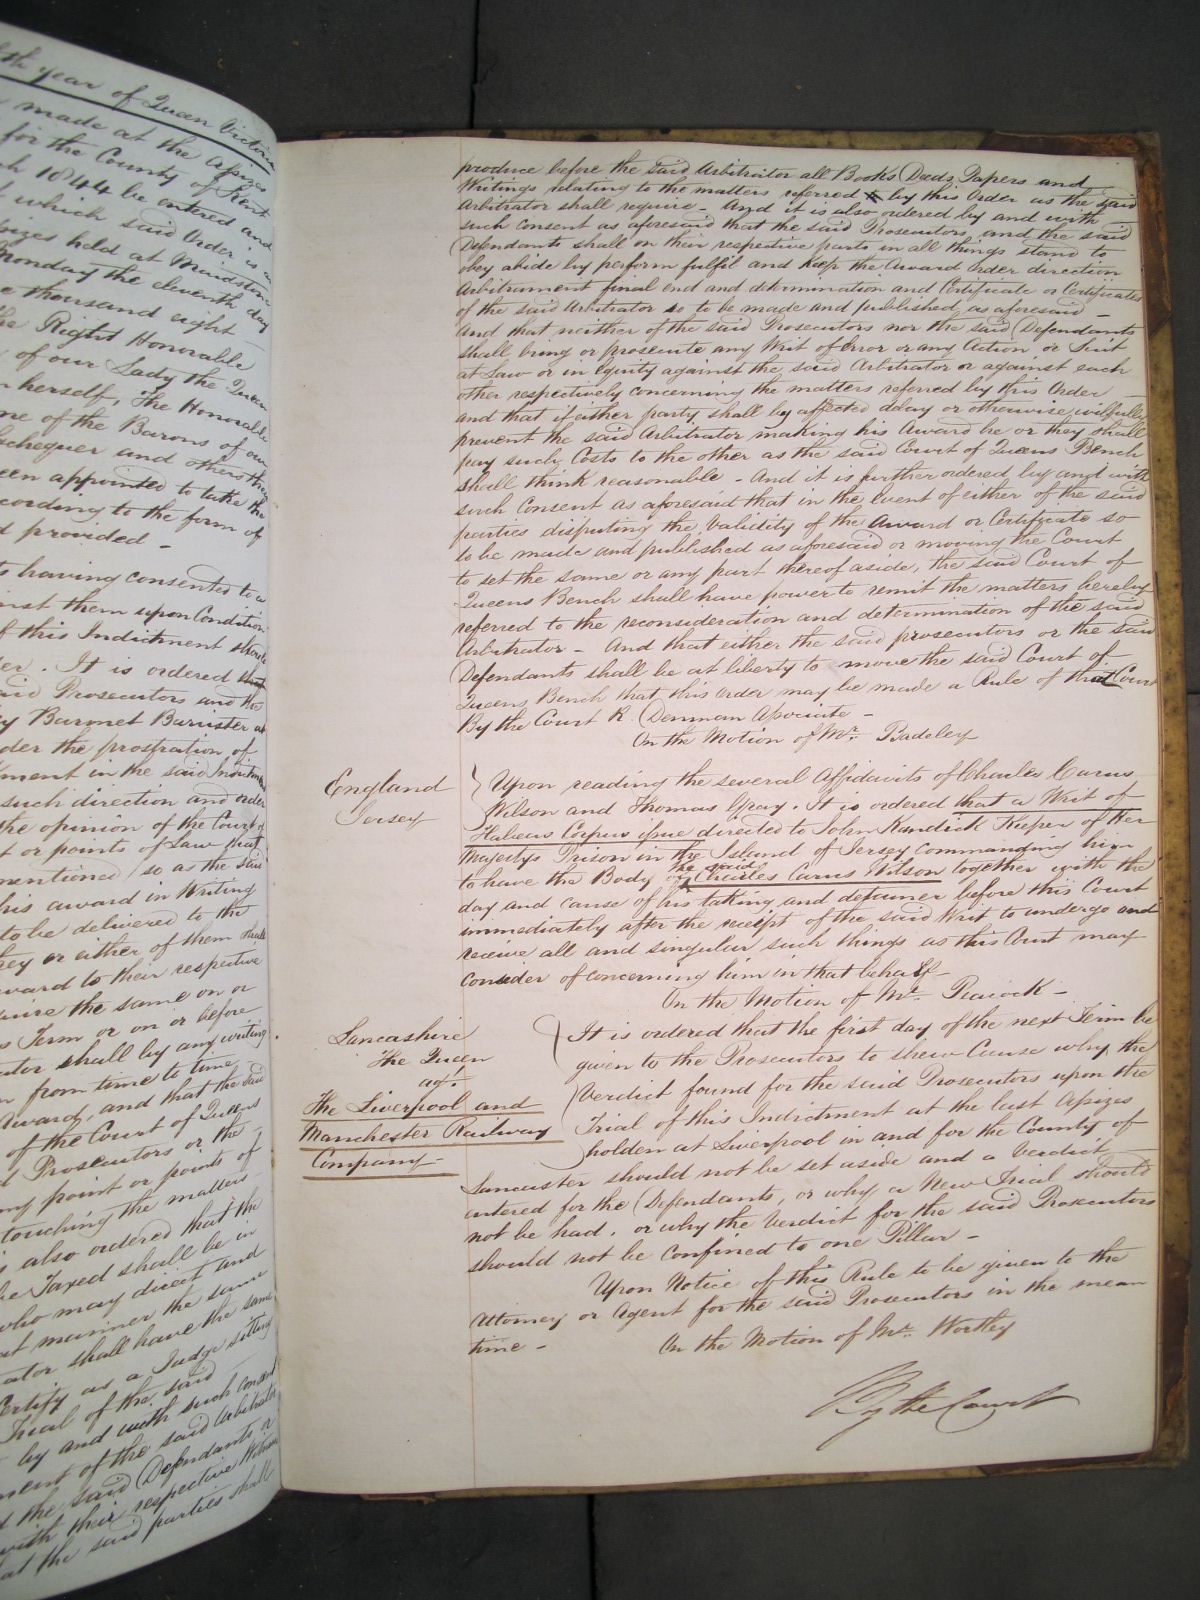 8th year of Queen Victoria
made at the Assizes
for the County of Kent
1844 be entered and
which said Order is in
Assizes held at Maidstone
Monday the eleventh day
thousand eight
the Right Honorable
of our Lady the Queen
herself, The Honorable
one of the Barons of our
Exchequer and others the
been appointed to take the
according to the form of
provided -
having consented to a
against them upon Condition
of this Indictment should
It is ordered that
said Prosecutors and the
Baronet Barrister at
under the prostration of
in the said Indictment
such direction and order
the opinion of the Court of
or points of Law that
mentioned so as the said
his award in Writing
to be delivered to the
they or either of them shall
award to their respective
require the same on or
Term or on or before
shall by any writing
from time to time
Award, and that the said
of the Court of Queens
Prosecutors or the
any point or points of
touching the matters
also ordered that the
be Taxed shall be in
who may direct and
manner the same
shall have the same
Certify as a Judge sitting
Trial of the said
by and with such consent
of the said Arbitrator
the said Defendants or
with their respective Witnesses
that the said parties shall
produce before the said Arbitrator all Books Deeds Papers and
Writings relating to the matters referred by this Order as the said
Arbitrator shall require - And it is also ordered by and with
such consent as aforesaid that the said Prosecutors, and the said
Defendants shall on their respective parts in all things stand to
obey abide by perform fulfil and keep the Award Order direction
Arbitrament final end and determination and Certificate or Certificates
of the said Arbitrator so to be made and published as aforesaid -
And that neither of the said Prosecutors nor the said Defendants
shall bring or prosecute any Writ of Error or any Action or Suit
at Law or in Equity against the said Arbitrator or against each
other respectively concerning the matters referred by this Order
and that if either party shall by affected delay or otherwise wilfully
prevent the said Arbitrator making his Award he or they shall
pay such Costs to the other as the said Court of Queens Bench
shall think reasonable - And it is further ordered by and with
such Consent as aforesaid that in the Event of either of the said
parties disputing the Validity of the Award or Certificate so
to be made and published as aforesaid or moving the Court
to set the same or any part thereof aside, the said Court of
Queens Bench shall have power to remit the matters hereby
referred to the reconsideration and determination of the said
Arbitrator - And that either the said prosecutors or the said
Defendants shall be at liberty to move the said Court of
Queens Bench that this Order may be made a Rule of that Court
By the Court R. Denman Associate -
On the Motion of Mr. Badeley
England
Jersey
Upon reading the several Affidavits of Charles Carus
Wilson and Thomas Gray. It is ordered that a Writ of
Habeas Corpus issue directed to John Kandrick Keeper of Her
Majestys Prison in the Island of Jersey commanding him
to have the Body of the said Charles Carus Wilson together with the
day and cause of his taking and detainer before this Court
immediately after the receipt of the said Writ to undergo and
receive all and singular such things as this Court may
consider of concerning him in that behalf -
On the Motion of Mr. Peacock -
Lancashire
The Queen
agt.
The Liverpool and
Manchester Railway
Company -
It is ordered that the first day of the next Term be
given to the Prosecutors to shew Cause why the
Verdict found for the said Prosecutors upon the
Trial of this Indictment at the last Assizes
holden at Liverpool in and for the County of
Lancaster should not be set aside and a Verdict
entered for the Defendants, or why a New Trial should
not be had, or why the Verdict for the said Prosecutors
should not be confined to one Pillar -
Upon Notice of this Rule to be given to the
Attorney or Agent for the said Prosecutors in the mean
time -
On the Motion of Mr. Wortley
By the Court